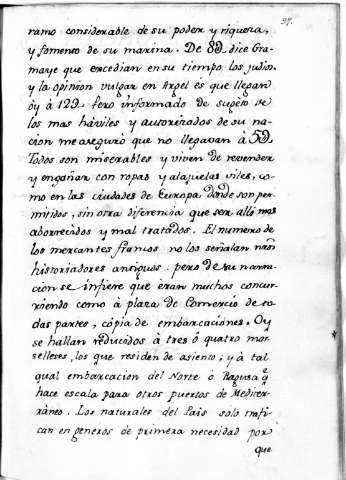 37.
ramo considerable de su poder y riqueza,
y fomento de su marina. De 8D dice Gra-
maye que excedian en su tiempo los judios,
y la opinion vulgar en Argel és que llegan
óy à 12D. pero informado de sugeto de
los mas háviles y autorizados de su na-
cion me aseguró que no llegavan à 5D.
Todos son miserables y viven de revender
y engañar con ropas y alajuelas viles, co-
mo en las ciudades de Europa donde son per-
mitidos, sin otra diferencia que ser alli mas
aborrecidos y mal tratados. El numero de
los mercantes francos no los señalan nros
historiadores antiguos: pero de su narra-
cion se infiere que éran muchos concur-
riendo como à plaza de Comercio de to-
das partes, cópia de embarcaciones. Oy
se hallan reducidos à tres ó quatro mar-
selleses, los que residen de asiento; y à tal
qual embarcacion del Norte ó Ragusa q.e
hace escala para otros puertos de Mediter-
ráneo. Los naturales del Pais solo trafi-
can en generos de primera necesidad por
que